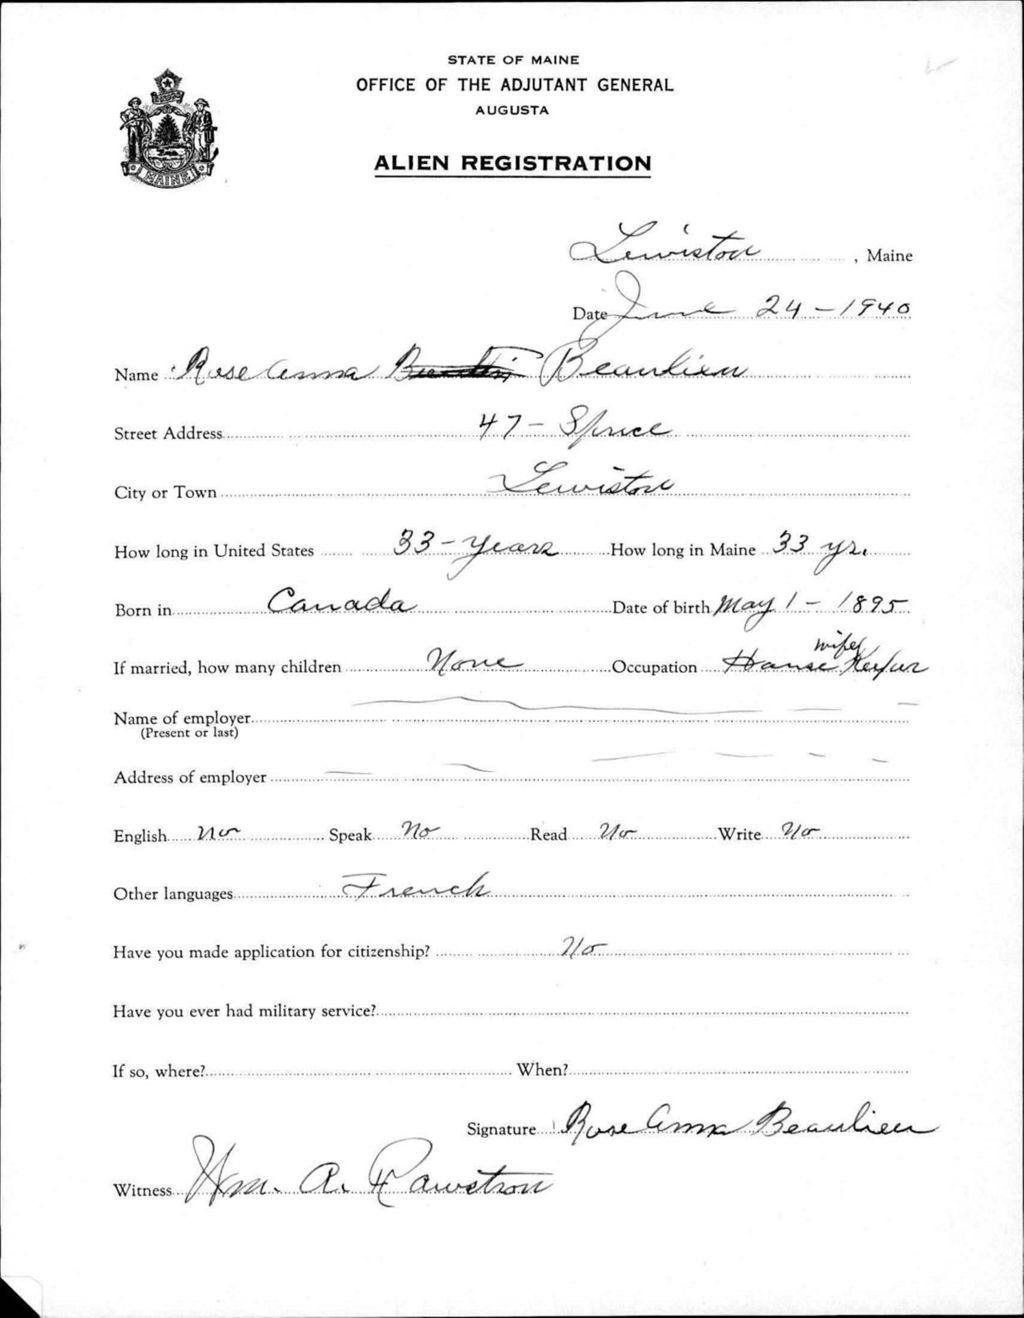 STATE OF MAINE
OFFICE OF THE ADJUTANT GENERAL
AUGUSTA
MAINE
ALIEN REGISTRATION
Lewiston, Maine
Date June 24-1940
Name Rose Anna Beaulieu
Street Address 47 - Spruce
City or Town Lewiston
How long in United States 33 - years How long in Maine 33 yr.
Born in Canada Date of birth May 1 - 1895
wife
If married, how many children None Occupation House
Name of employer
(Present or last)
Address of employer
English No Speak No Read No Write No
Other languages French
Have you made application for citizenship? No
Have you ever had military service?
If so, where? When?
Signature Rose Anna Beaulieu
Witness Wm. A. Rawstron